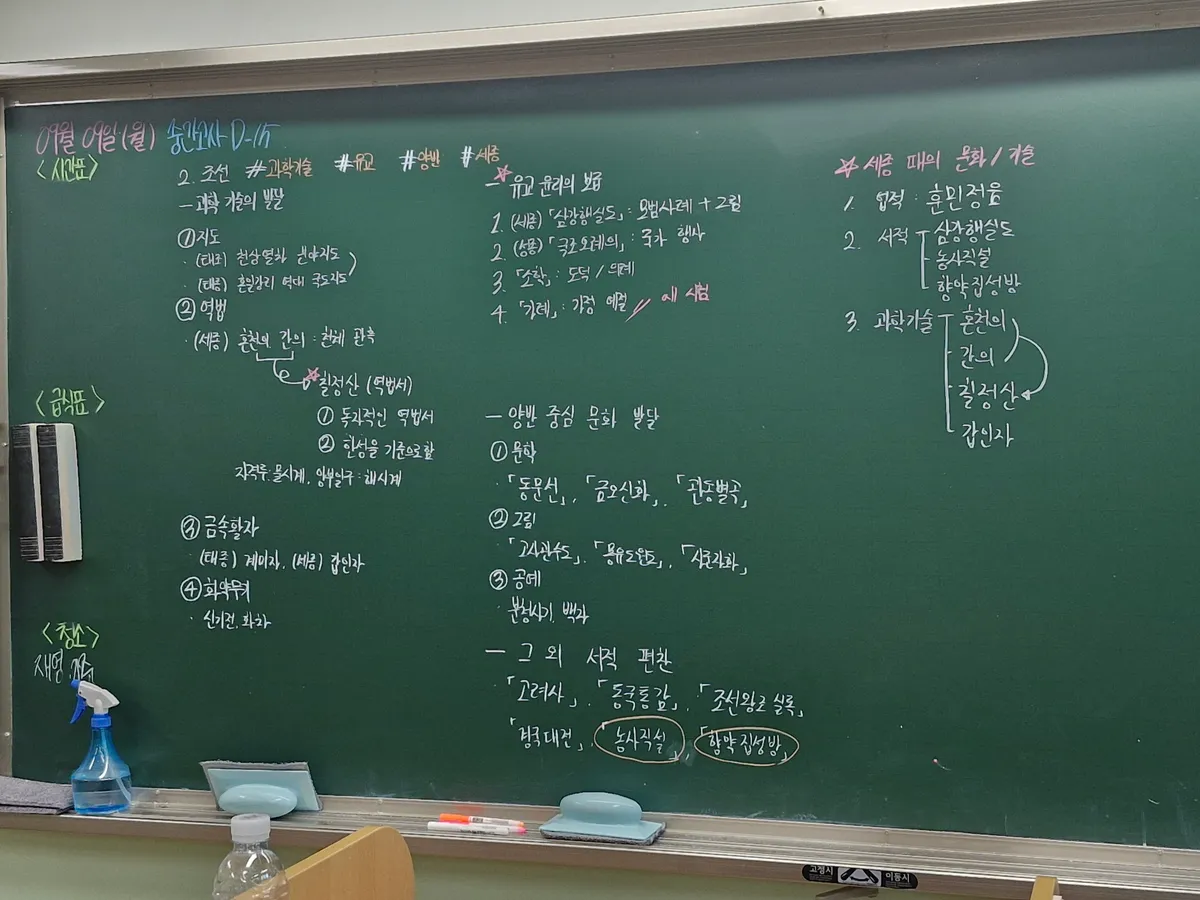 09월 09일(월) 중간고사 D-15
<시간표>
<급식표>
<청소>
재영
2. 조선 #과학기술 #유교 #양반 #세종
- 과학 기술의 발달
① 지도
· (태조) 천상열차 분야지도
· (태종) 혼일강리 역대 국도지도
② 역법
· (세종) 혼천의 간의 : 천체 관측
☆ 칠정산 (역법서)
① 독자적인 역법서
② 한성을 기준으로 함
자격루:물시계, 앙부일구:해시계
③ 금속활자
(태종) 계미자, (세종) 갑인자
④ 화약무기
· 신기전, 화차
☆
- 유교 윤리의 보급
1. (세종)「삼강행실도」: 모범사례 + 그림
2. (성종)「국조오례의」: 국가 행사
3. 「소학」: 도덕 / 의례
4. 「가례」: 가정 예절 // 시험
- 양반 중심 문화 발달
① 문학
·「동문선」,「금오신화」,「관동별곡」
② 그림
·「고사관수도」,「몽유도원도」,「사군자화」
③ 공예
· 분청사기, 백자
- 그 외 서적 편찬
·「고려사」,「동국통감」,「조선왕조실록」
「경국대전」,「농사직설」,「향약집성방」
☆ 세종 때의 문화 / 기술
1. 업적 : 훈민정음
2. 서적 - 삼강행실도
- 농사직설
- 향약집성방
3. 과학기술 - 혼천의
- 간의
- 칠정산
- 갑인자
고정시
이동시